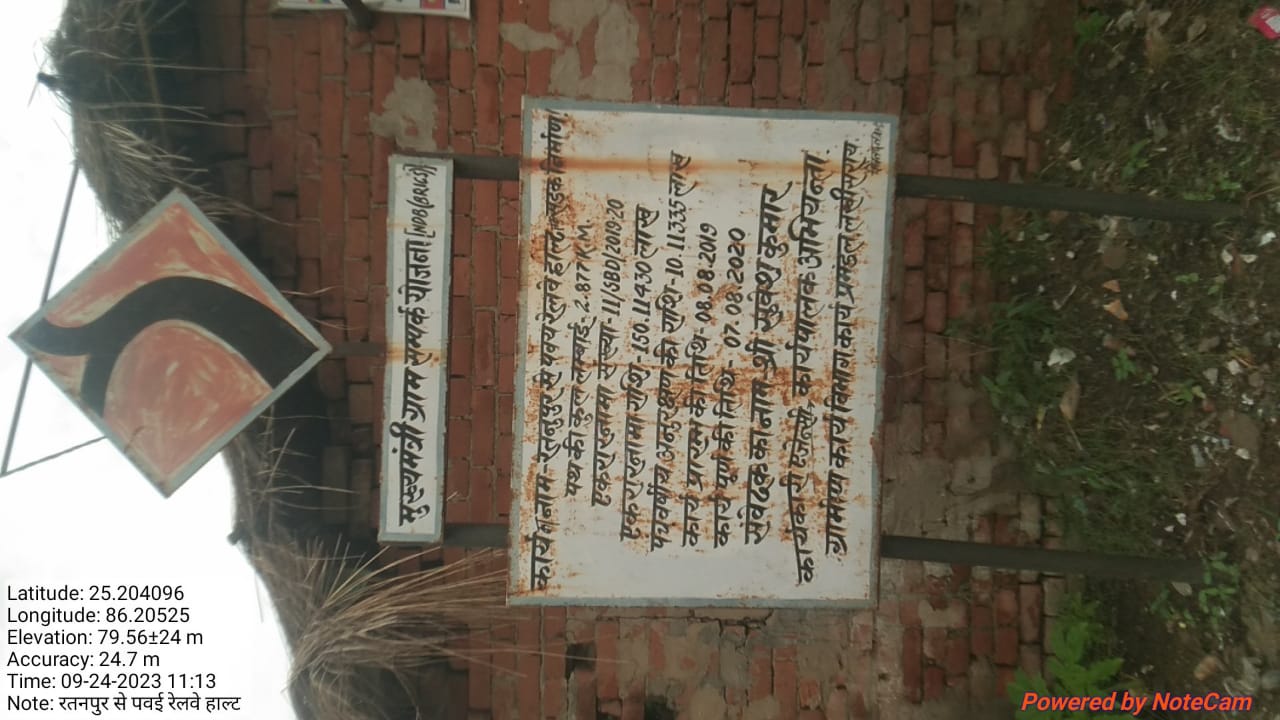 मुख्यमंत्री ग्राम सम्पर्क योजना (NDB(BRRP))
कार्य का नाम - रतनपुर से पवय रेलवे हाल्ट सड़क निर्माण
पथ की कुल लम्बाई - 2.877 K.M.
एकरारनामा संख्या - 11/SBD/2019-20
एकरारनामा राशि - 150.11430 लाख
पंचवर्षीय अनुरक्षण की राशि - 10.11335 लाख
कार्य प्रारम्भ की तिथि - 08.08.2019
कार्य पूर्ण की तिथि - 07.08.2020
संवेदक का नाम श्री सुवेश कुमार
कार्यकारी एजेन्सी - कार्यपालक अभियन्ता
ग्रामीण कार्य विभाग कार्य प्रमंडल लखीसराय
Latitude: 25.204096
Longitude: 86.20525
Elevation: 79.56±24 m
Accuracy: 24.7 m
Time: 09-24-2023 11:13
Note: रतनपुर से पवई रेलवे हाल्ट
Powered by NoteCam